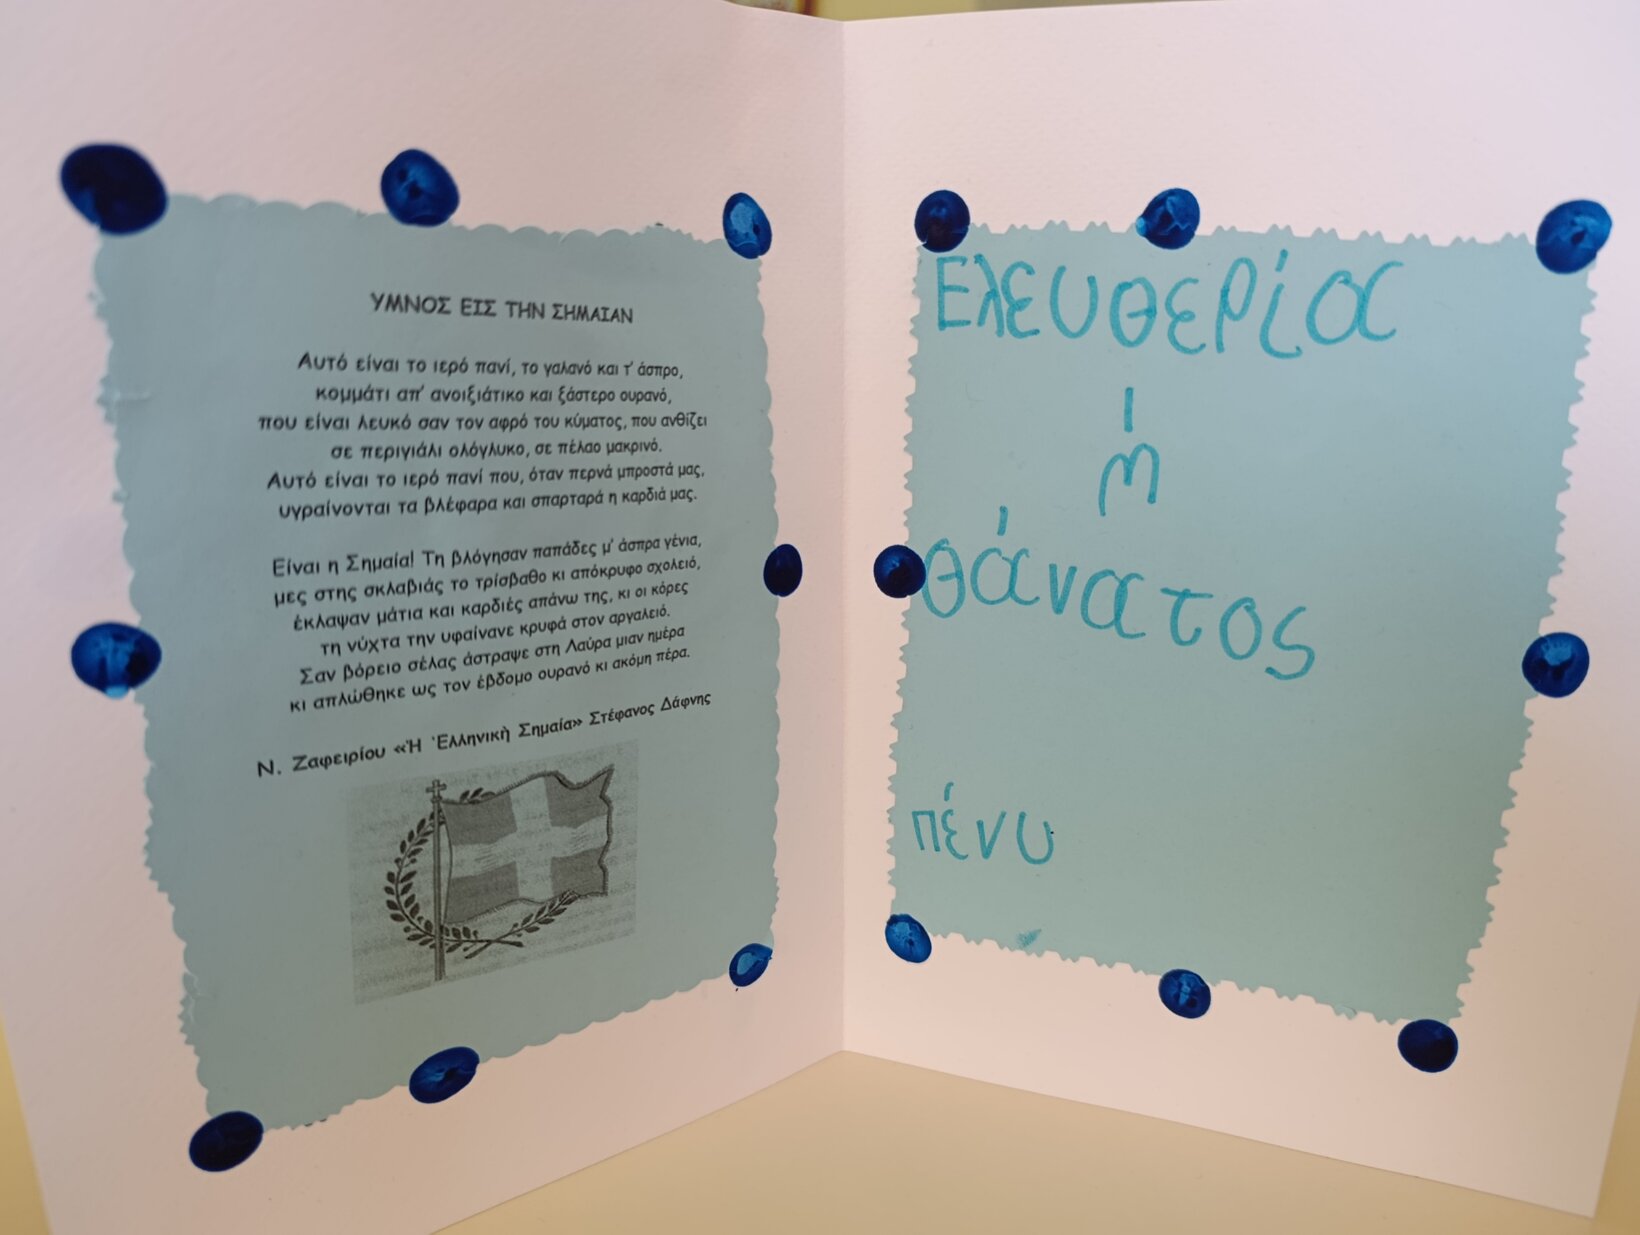 ΥΜΝΟΣ ΕΙΣ ΤΗΝ ΣΗΜΑΙΑΝ
Αυτό είναι το ιερό πανί, το γαλανό και τ' άσπρο,
κομμάτι απ' ανοιξιάτικο και ξάστερο ουρανό,
που είναι λευκό σαν τον αφρό του κύματος, που ανθίζει
σε περιγιάλι ολόγλυκο, σε πέλαο μακρινό.
Αυτό είναι το ιερό πανί που, όταν περνά μπροστά μας,
υγραίνονται τα βλέφαρα και σπαρταρά η καρδιά μας.
Είναι η Σημαία! Τη βλόγησαν παπάδες μ' άσπρα γένια,
μες στης σκλαβιάς το τρίσβαθο κι απόκρυφο σχολειό,
έκλαψαν μάτια και καρδιές απάνω της, κι οι κόρες
τη νύχτα την υφαίνανε κρυφά στον αργαλειό.
Σαν βόρειο σέλας άστραψε στη Λαύρα μιαν ημέρα
κι απλώθηκε ως τον έβδομο ουρανό κι ακόμη πέρα.
Ν. Ζαφειρίου «Ἡ Ἑλληνικὴ Σημαία» Στέφανος Δάφνης
Ελευθερία
ή
θάνατος
πένυ